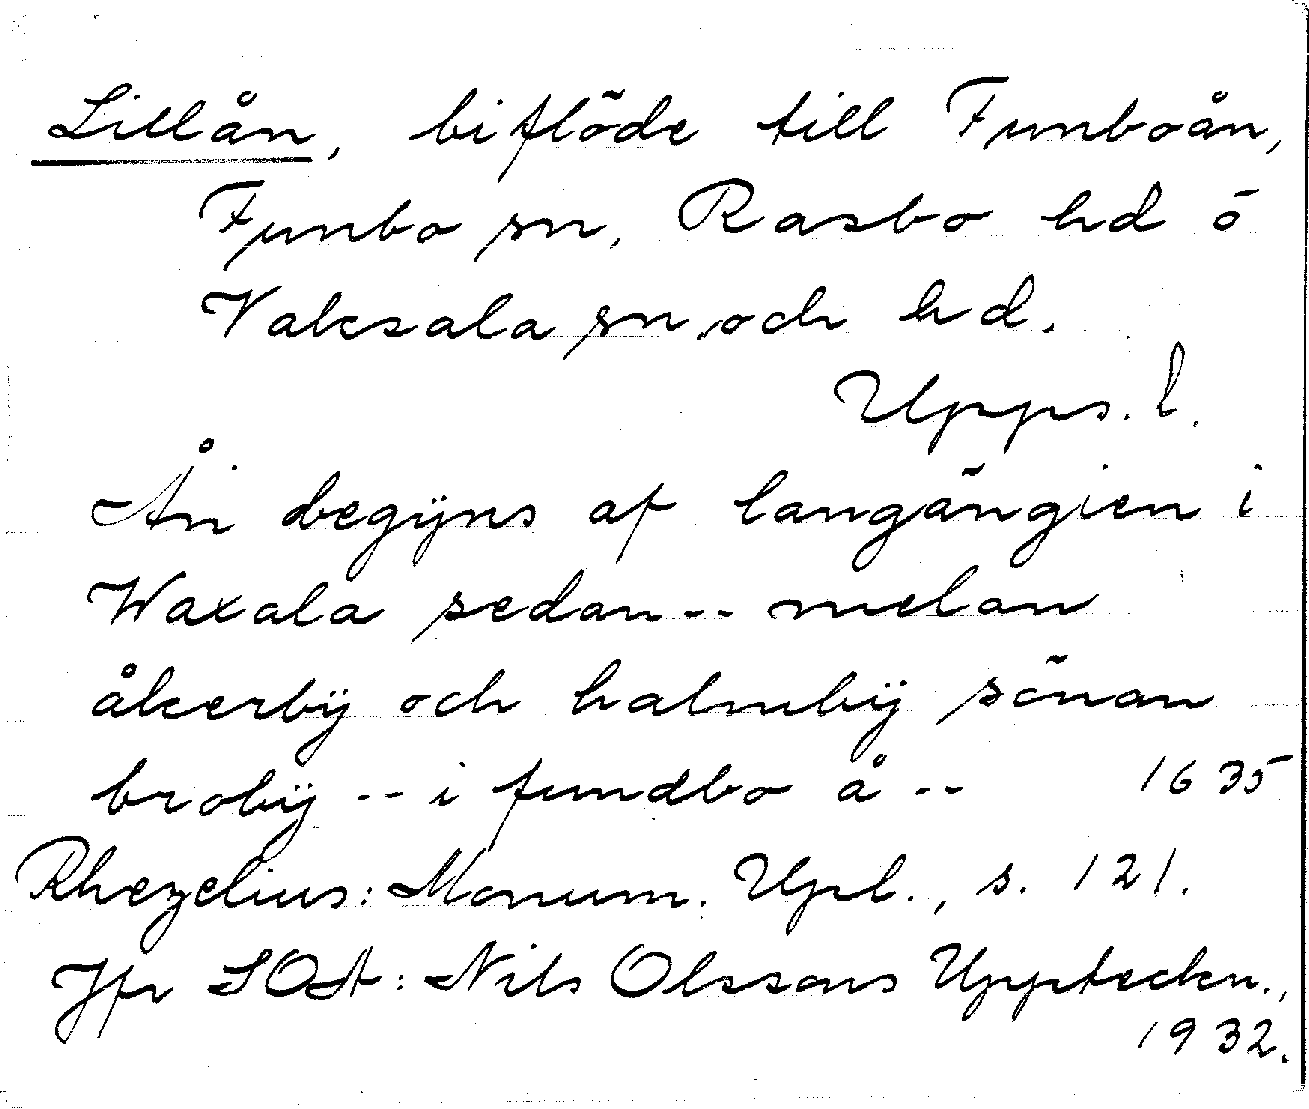 Lillån, biflöde till Funboån,
Funbo sn, Rasbo hd o
Vaksala sn och hd.
Upps. l.
Ån begÿns af langängien i
Waxala sedan -- melan
åkerbÿ och halmbÿ sönan
brobÿ -- i fundbo å -- 1635
Rhezelius: Monum. Upl., s. 121.
Jfr SOA: Nils Olssons Uppteckn.,
1932.